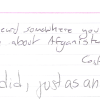 eard somewhere you
e about Afghanista
Cou
did, just as an